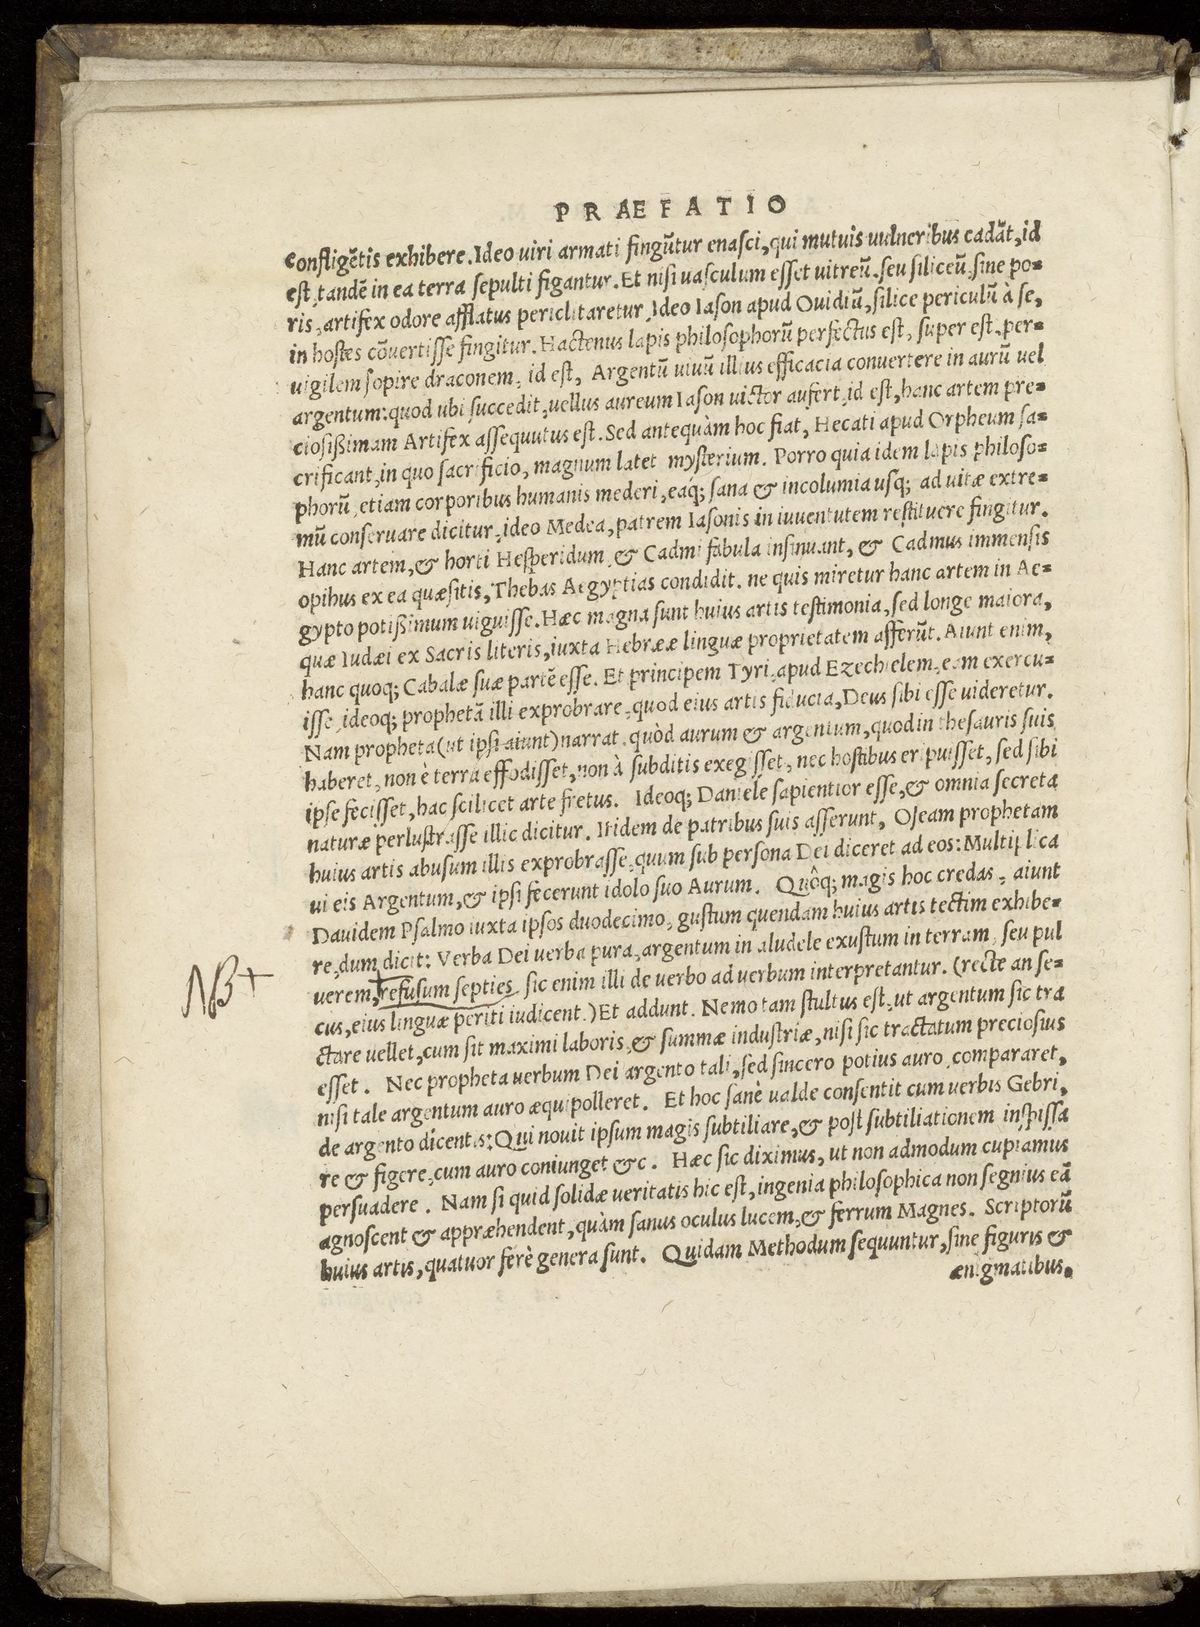 PRAEFATIO
confligẽtis exhibere. Ideo uiri armati fingũtur enasci, qui mutuis uulneribus cadãt, id
est, tandẽ in ea terra sepulti figantur. Et nisi uasculum esset uitreũ, seu siliceũ, sine po-
ris, artifex odore afflatus periclitaretur, Ideo Iason apud Ouidiũ, silice periculũ à se,
in hostes cõuertisse fingitur. Hactenus lapis philosophorũ perfectus est, super est, per-
uigilem sopire draconem, id est, Argentũ uiuũ illius efficacia conuertere in aurũ uel
argentum: quod ubi succedit, uellus aureum Iason uictor aufert, id est, hanc artem pre-
ciosißimam Artifex assequutus est. Sed antequàm hoc fiat, Hecati apud Orpheum sa-
crificant, in quo sacrificio, magnum latet mysterium. Porro quia idem lapis philoso-
phorũ, etiam corporibus humanis mederi, eaq́; sana & incolumia usq; ad uitæ extre-
mũ conseruare dicitur, ideo Medea, patrem Iasonis in iuuentutem restituere fingitur.
Hanc artem, & horti Hesperidum, & Cadmi fabula insinuant, & Cadmus immensis
opibus ex ea quæsitis, Thebas Aegyptias condidit. ne quis miretur hanc artem in Ae-
gypto potißimum uiguisse. Hæc magna sunt huius artis testimonia, sed longe maiora,
quæ Iudæi ex Sacris literis, iuxta Hebrææ linguæ proprietatem afferũt. Aiunt enim,
hanc quoq; Cabalæ suæ partẽ esse. Et principem Tyri, apud Ezechielem, eam exercu-
isse, ideoq; prophetã illi exprobrare, quod eius artis fiducia, Deus sibi esse uideretur.
Nam propheta (ut ipsi aiunt) narrat, quòd aurum & argentum, quod in thesauris suis
haberet, non è terra effodisset, non à subditis exegisset, nec hostibus eripuisset, sed sibi
ipse fecisset, hac scilicet arte fretus. Ideoq; Daniele sapientior esse, & omnia secreta
naturæ perlustrasse illic dicitur. Itidem de patribus suis asserunt, Oseam prophetam
huius artis abusum illis exprobrasse, quum sub persona Dei diceret ad eos: Multiplica
ui eis Argentum, & ipsi fecerunt idolo suo Aurum. Quôq; magis hoc credas, aiunt
Dauidem Psalmo iuxta ipsos duodecimo, gustum quendam huius artis tectim exhibe-
re, dum dicit: Verba Dei uerba pura, argentum in aludele exustum in terram, seu pul
NB+ uerem, refusum septies, sic enim illi de uerbo ad uerbum interpretantur. (recte an se-
cus, eius linguæ periti iudicent.) Et addunt. Nemo tam stultus est, ut argentum sic tra
ctare uellet, cum sit maximi laboris, & summæ industriæ, nisi sic tractatum preciosius
esset. Nec propheta uerbum Dei argento tali, sed sincero potius auro, compararet,
nisi tale argentum auro æquipolleret. Et hoc sanè ualde consentit cum uerbis Gebri,
de argento dicentis: Qui nouit ipsum magis subtiliare, & post subtiliationem inspissa
re & figere, cum auro coniunget &c. Hæc sic diximus, ut non admodum cupiamus
persuadere. Nam si quid solidæ ueritatis hic est, ingenia philosophica non segnius eã
agnoscent & appræhendent, quàm sanus oculus lucem, & ferrum Magnes. Scriptorũ
huius artis, quatuor ferè genera sunt. Quidam Methodum sequuntur, sine figuris &
ænigmatibus.